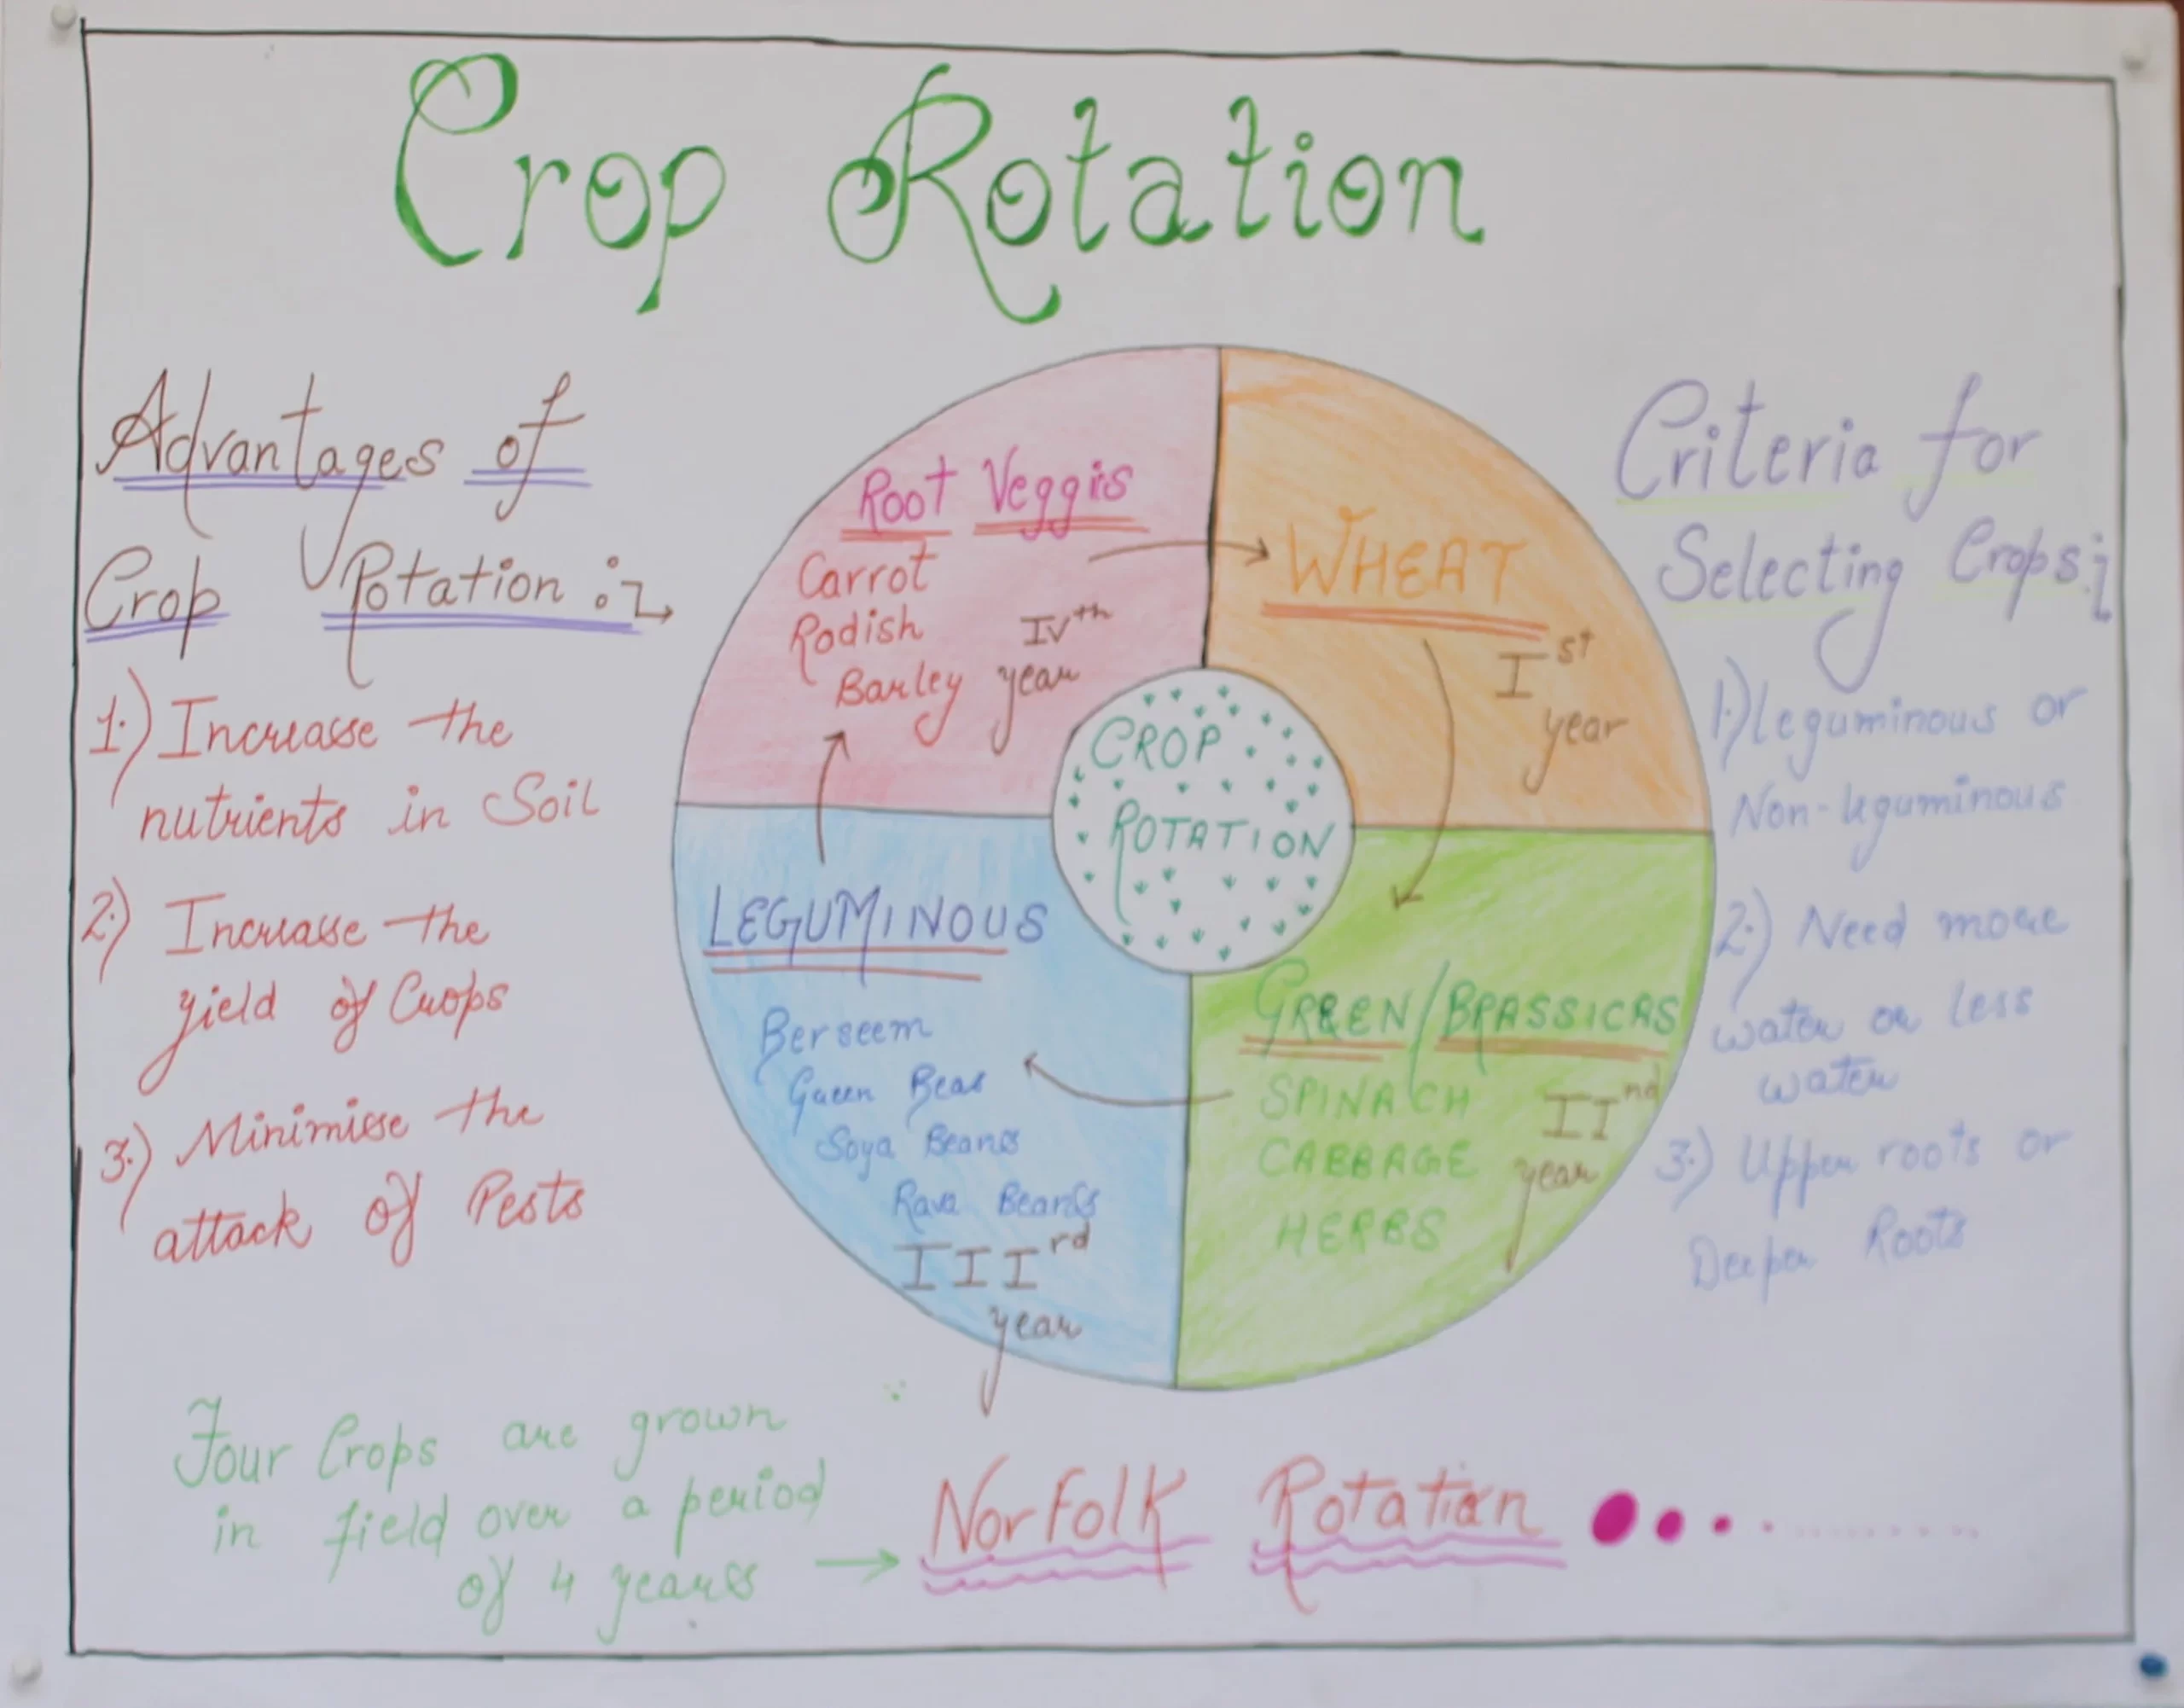 Crop Rotation
Advantages of
Crop Rotation :
1.) Increase the
nutrients in Soil
2.) Increase the
yield of Crops
3.) Minimise the
attack of Pests
Root Veggis
Carrot
Radish
Barley
IVth
year
WHEAT
Ist
year
CROP
ROTATION
LEGUMINOUS
Berseem
Green Beas
Soya Beans
Rava Beans
IIIrd
year
GREEN/BRASSICAS
SPINACH
CABBAGE
HERBS
IInd
year
Criteria for
Selecting Crops:
1.) leguminous or
Non-leguminous
2.) Need more
water or less
water
3.) Upper roots or
Deeper Roots
Four Crops are grown
in field over a period
of 4 years → Norfolk Rotation